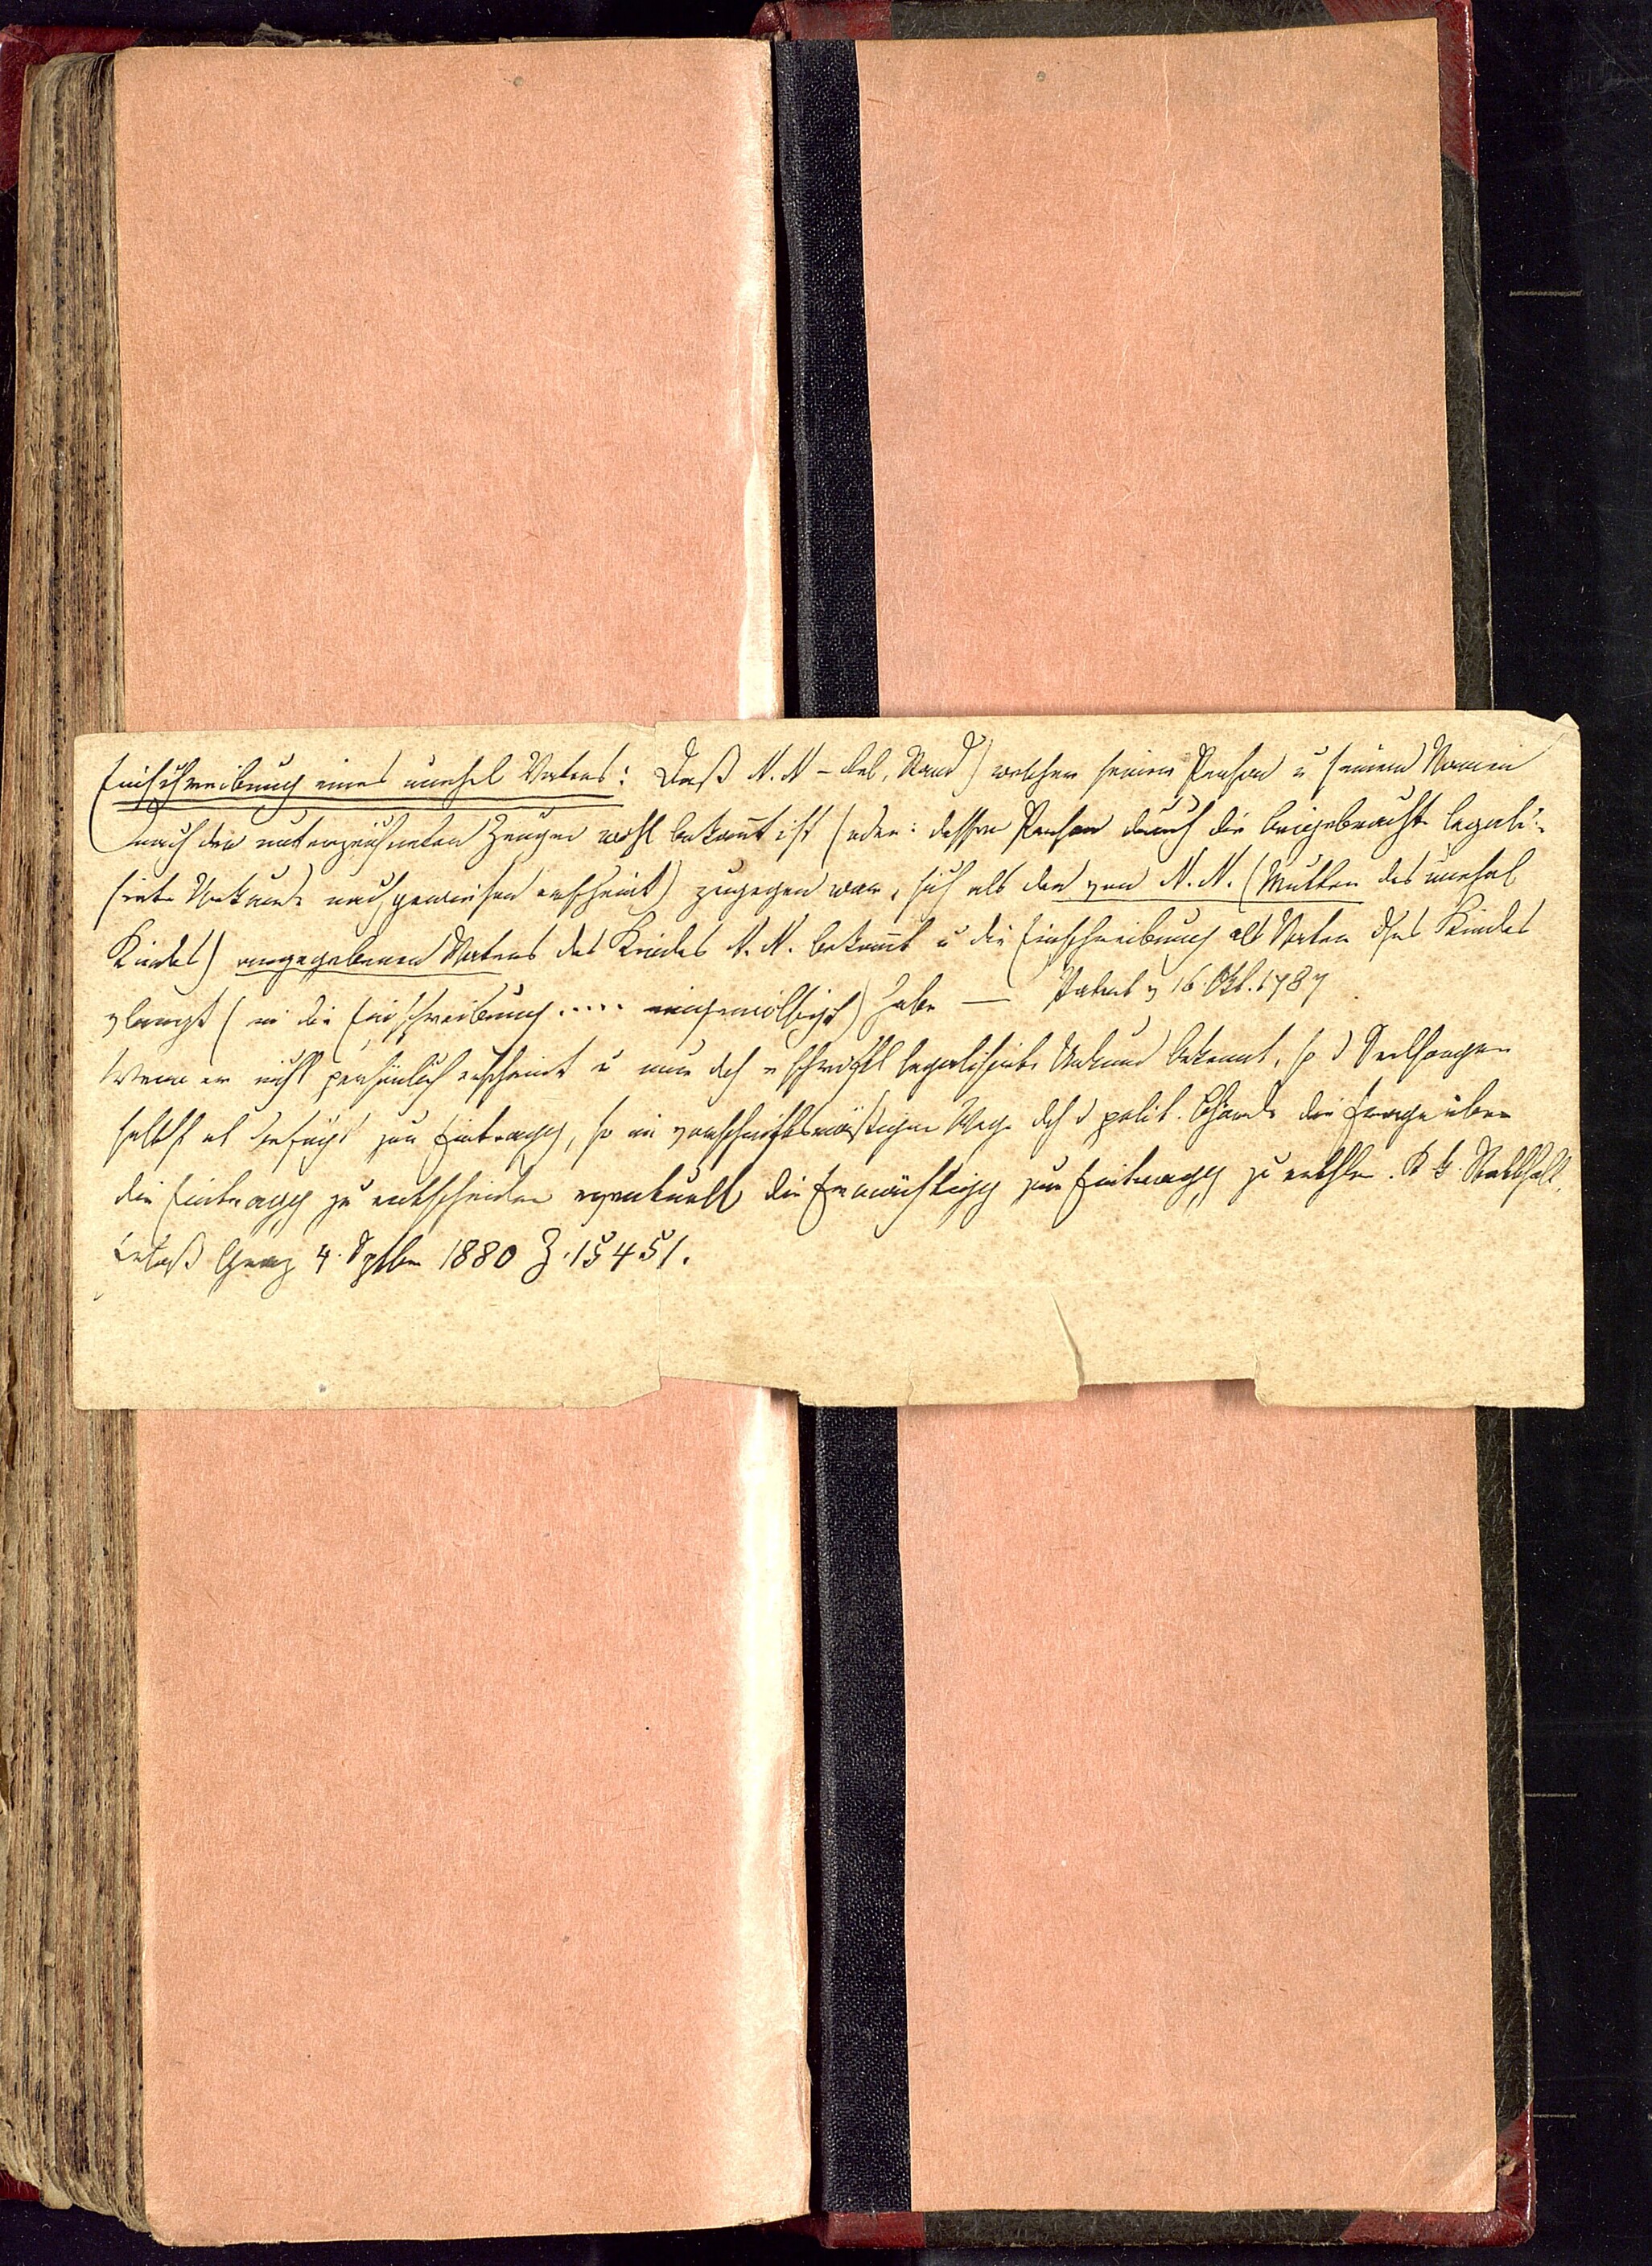 Einschreibung eines unehel Vaters: Daß N. N – Rel, Stand) welcher seiner Person u seinem Namen
nach den unterzeichneten Zeugen wohl bekañt ist (oder: dessen Person durch die beigebrachte legali-
sirte Urkunde nachgewiesen erscheint) zugegen war, sich als den von N. N. (Mutter des unehel
Kindes) angegebenen Vaters des Kindes N. N. bekañt u die Einschreibung als Vater dses Kindes
vlangt (in die Einschreibung ..... eingewilligt) habe — Patent v 16. Okt. 1787
Wenn er nicht persönlich erscheint u nur dch legalisirte Urkund bekennt, so d Seelsorger
selbst befugt zur Eintragg, so im vorschriftsmäßigen Wege dch d polit. Bhörde die Frage über
die Eintragg zu entscheiden eventuell die Ermächtigg zur Eintragg zu erthln. K k. Statthalt.
Erlaß Graz 4. Sptbr 1880 Z. 15451.